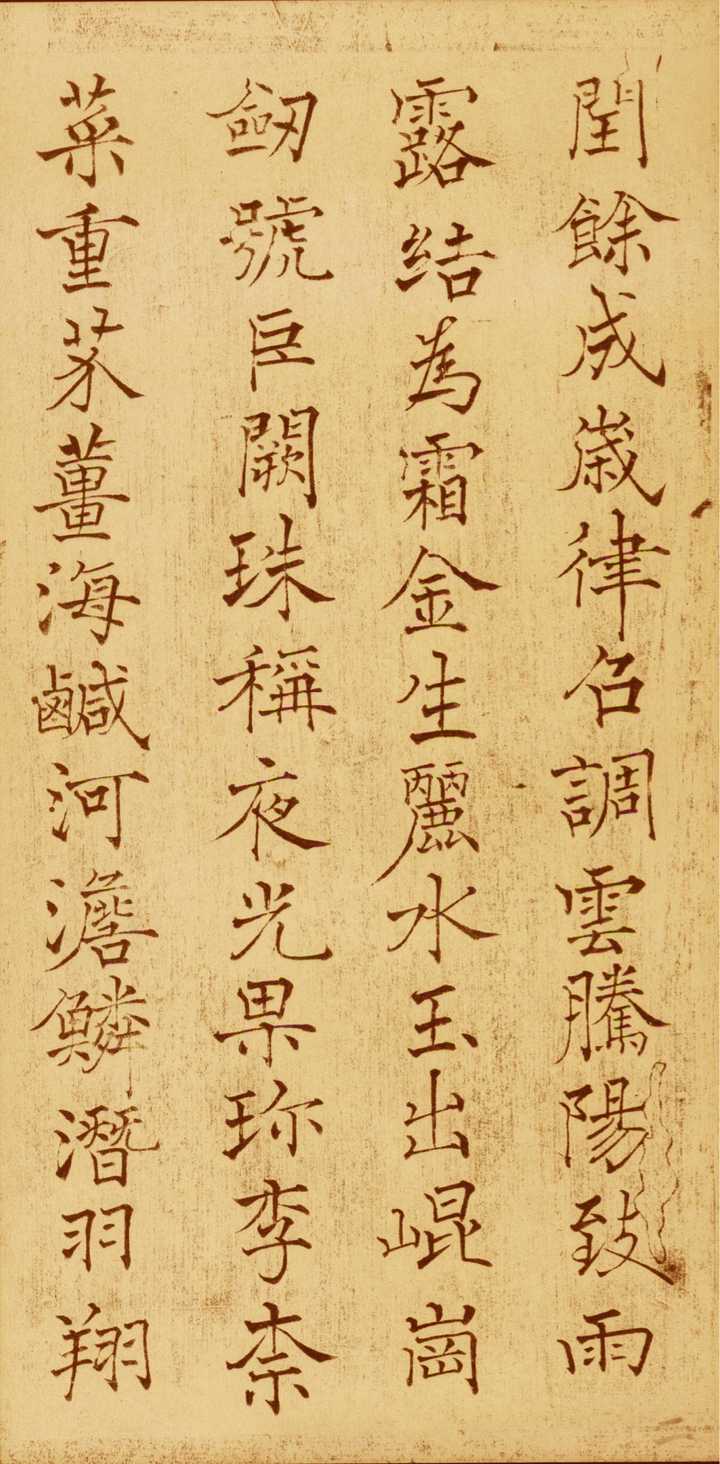 閏餘成歲律召調雲騰陽致雨
露结為霜金生麗水玉出崐崗
劒號巨闕珠稱夜光果珎李柰
菜重芥薑海鹹河澹鱗潛羽翔